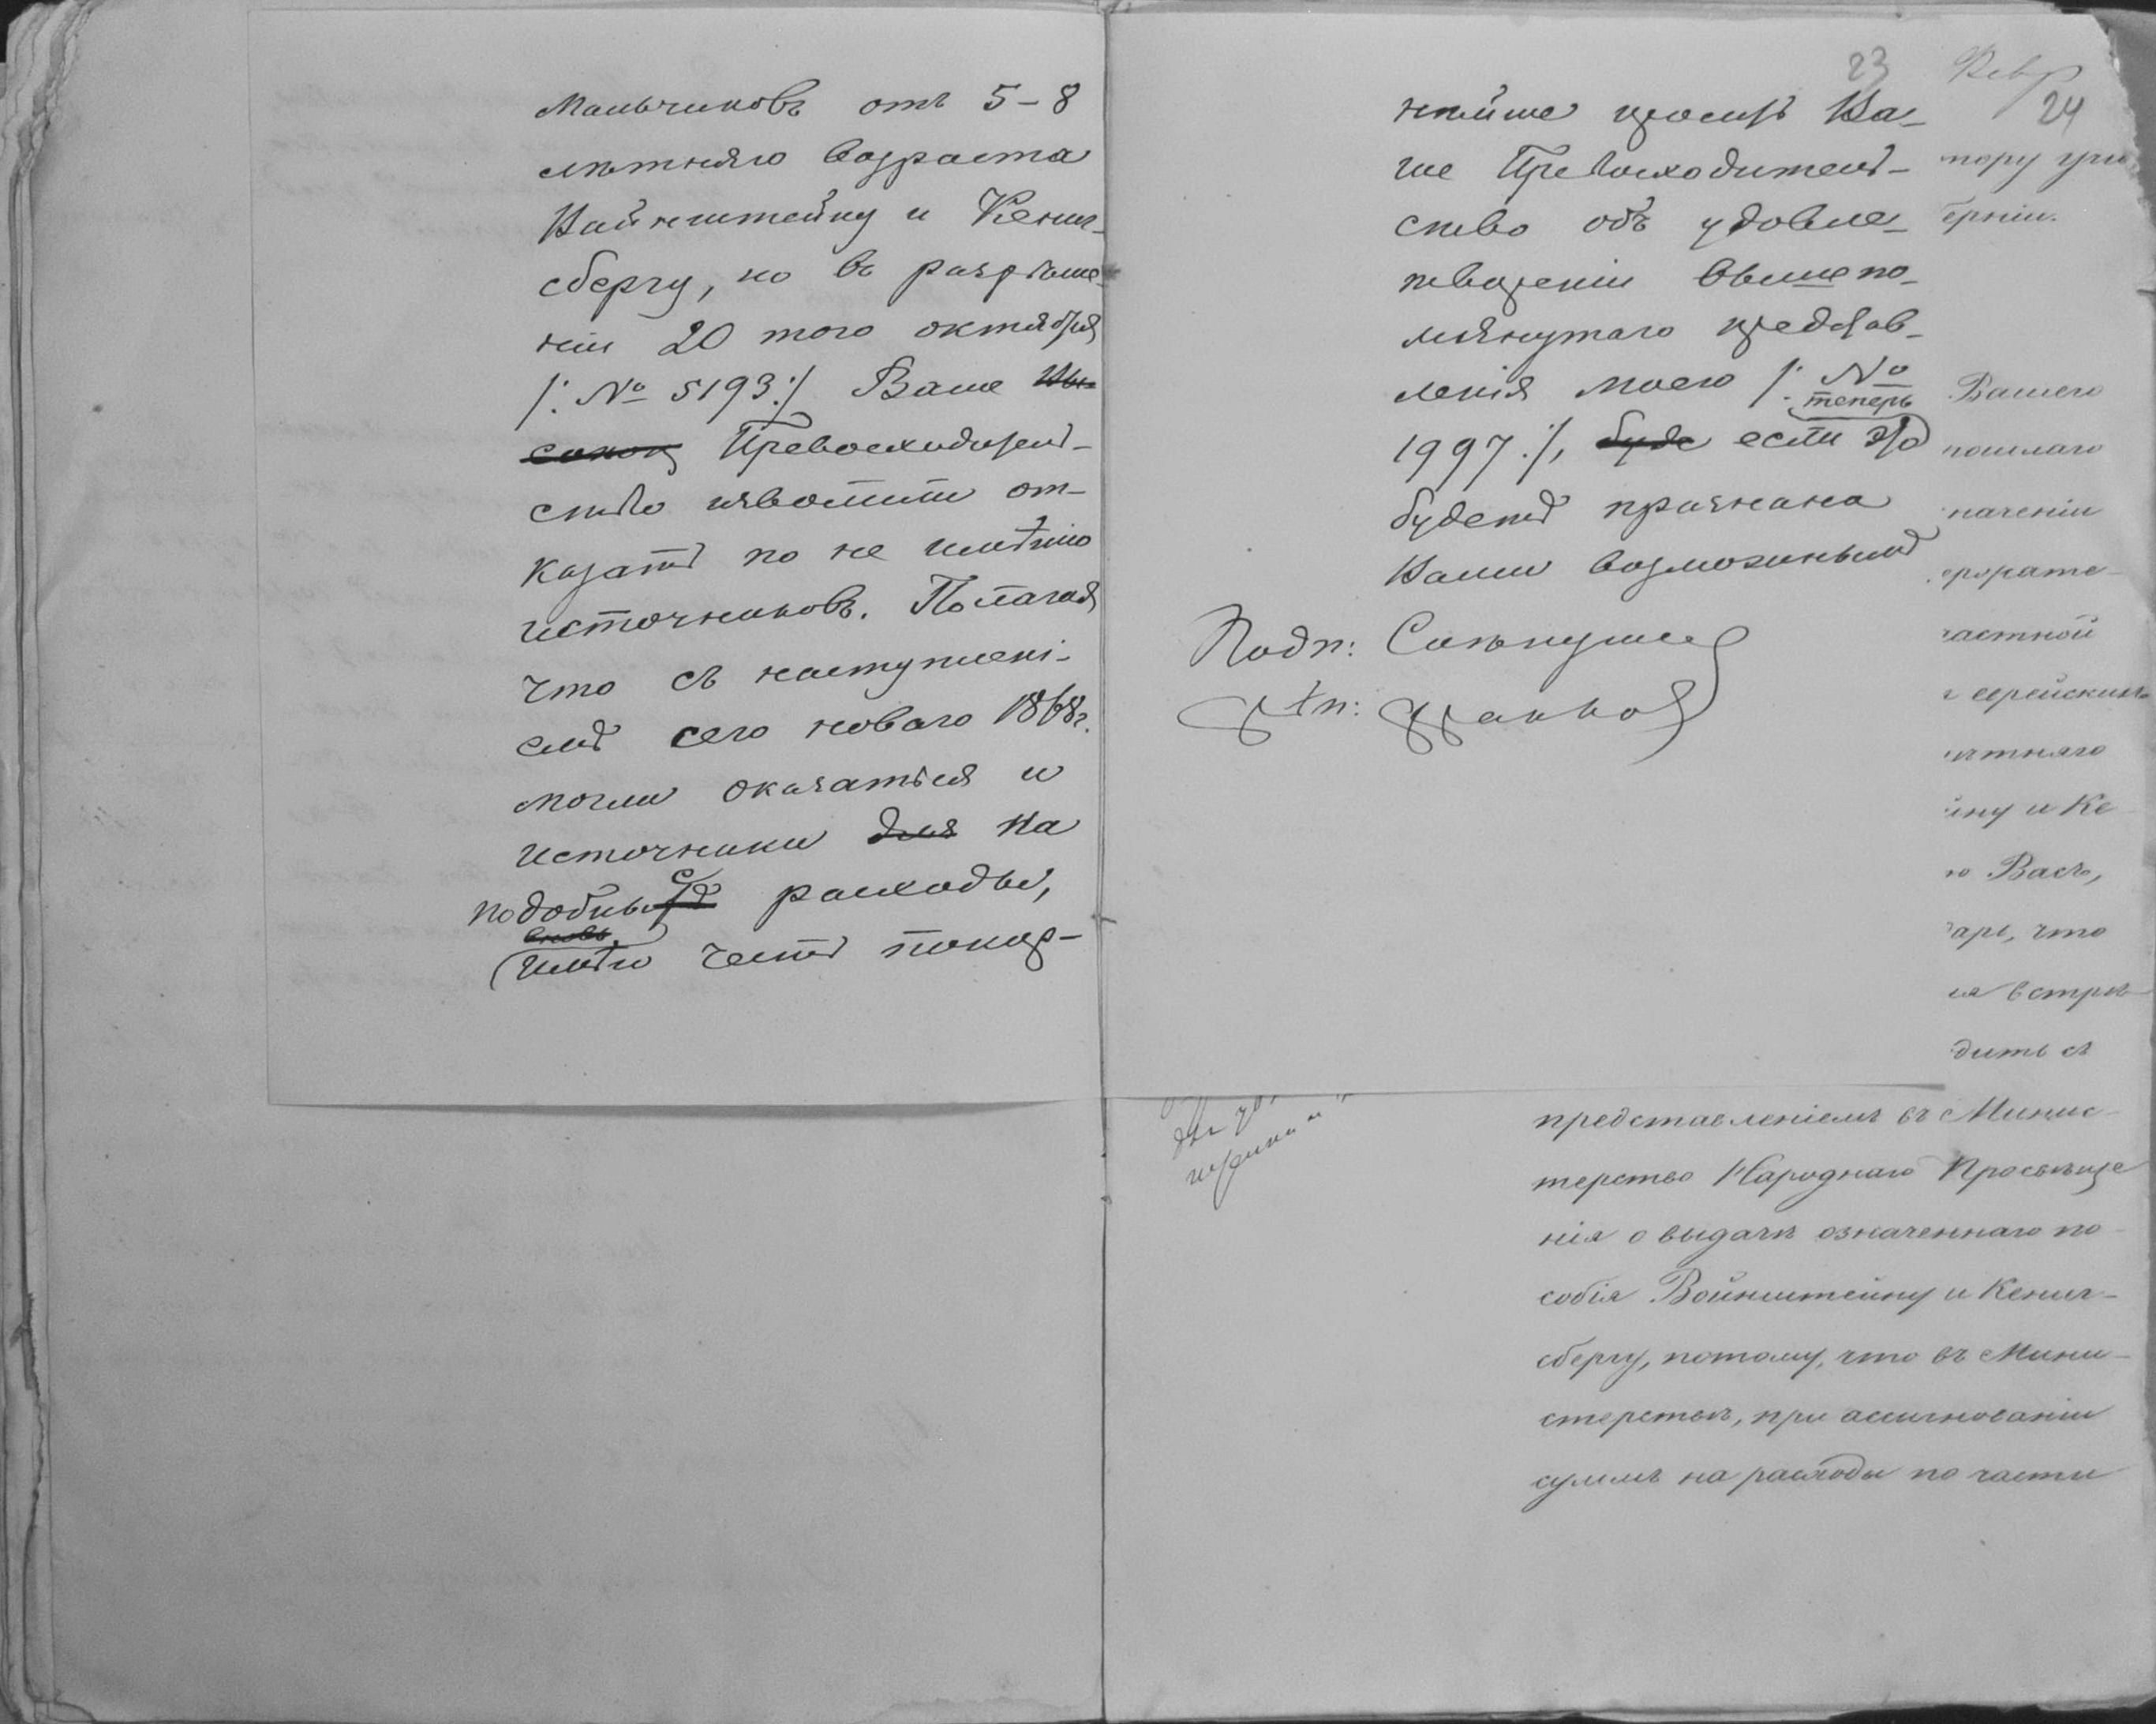 мальчиковъ отъ 5-8
лѣтняго возраста
Вайнштейну и Кениг-
сбергу, но въ разрѣше-
ніи 20 того октября
/: № 5193 :/ Ваше Вы-
сокоп Превосходитель-
ство изволили от-
казать по не имѣнію
источниковъ. Полагая
что съ наступлені-
емъ сего новаго 1868 г.
могли оказаться и
источники для на
подобные расходы,
вновь
имѣю честь покор-
23
нѣйше просить Ва-
ше Превосходитель-
ство объ удовле-
твореніи вышепо-
мянутаго представ-
ленія моего /: №
теперь
1997 :/, буде если это
будетъ признано
Вами возможнымъ
Подп:
24
тору учи
берніи.
Вашего
пошлаго
значеніи
частной
еврейскихъ
лѣтняго
йну и Ке
ю Васъ,
дарь, что
ся встрѣ-
дить съ
представленіемъ въ Минис-
терство Народнаго Просвѣще
нія о выдачѣ означеннаго по-
собія Войнштейну и Кениг-
сбергу, потому, что въ Мини-
стерствѣ, при ассигнованіи
суммъ на расходы по части